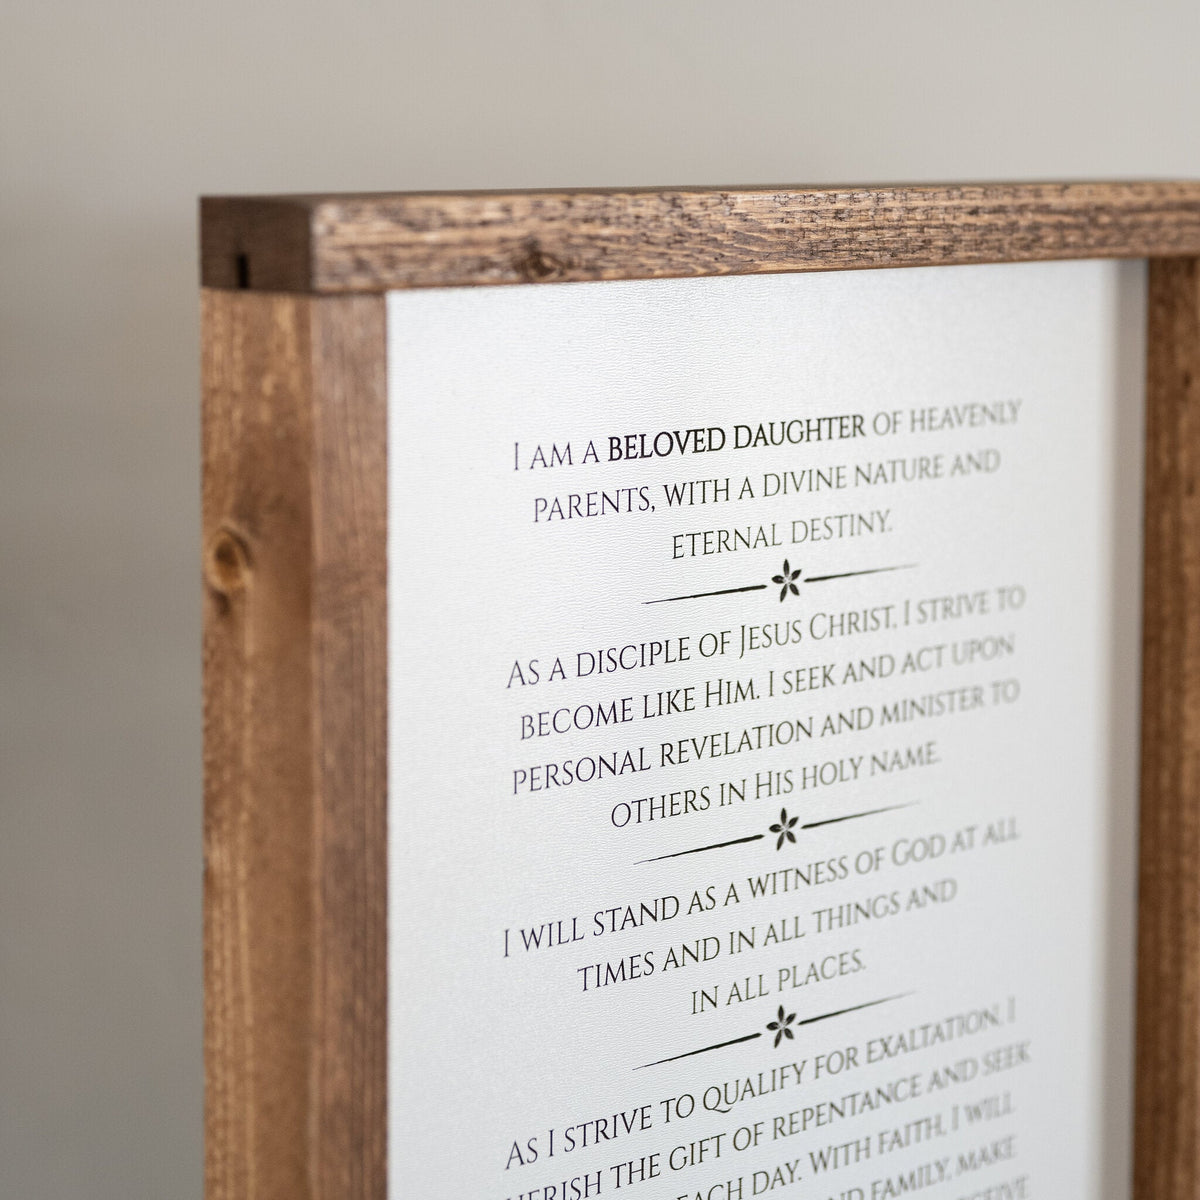 I AM A BELOVED DAUGHTER OF HEAVENLY
PARENTS, WITH A DIVINE NATURE AND
ETERNAL DESTINY.
AS A DISCIPLE OF JESUS CHRIST, I STRIVE TO
BECOME LIKE HIM. I SEEK AND ACT UPON
PERSONAL REVELATION AND MINISTER TO
OTHERS IN HIS HOLY NAME.
I WILL STAND AS A WITNESS OF GOD AT ALL
TIMES AND IN ALL THINGS AND
IN ALL PLACES.
AS I STRIVE TO QUALIFY FOR EXALTATION, I
THE GIFT OF REPENTANCE AND SEEK
EACH DAY. WITH FAITH, I WILL
FAMILY, MAKE